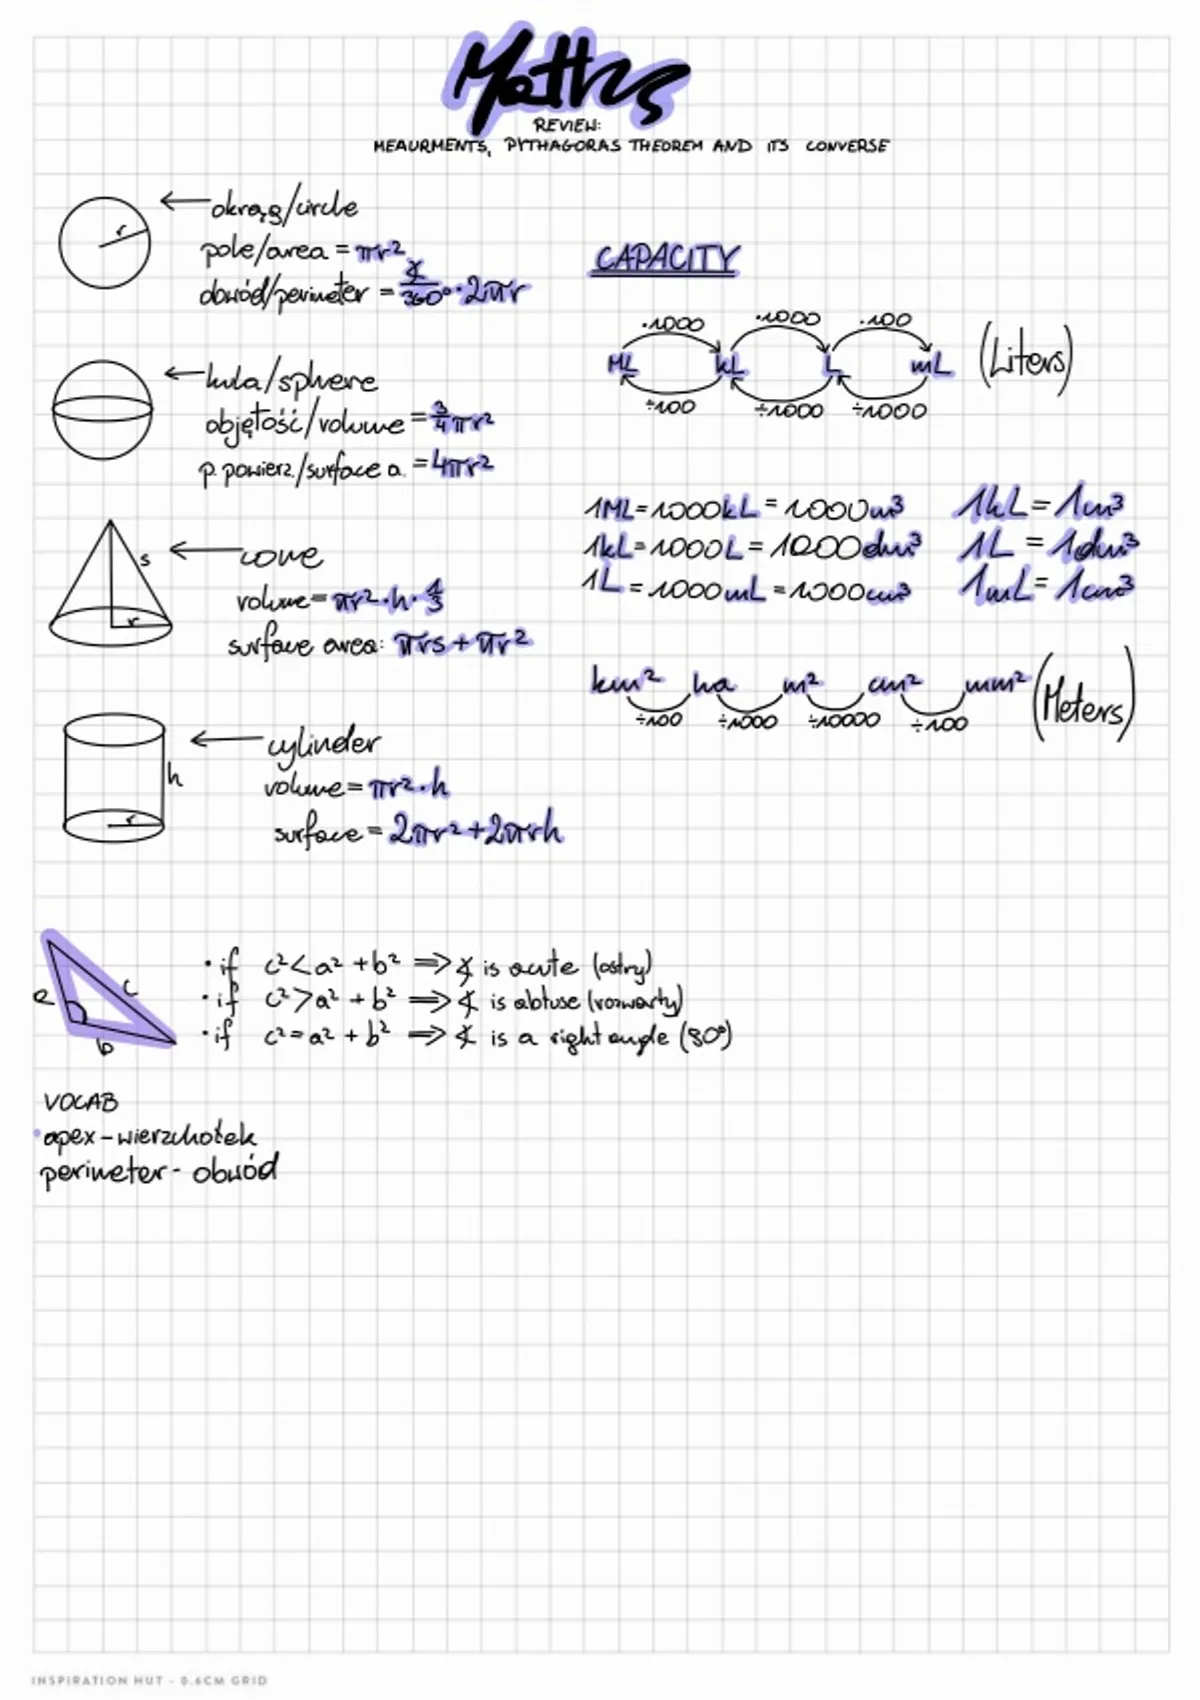 Maths
REVIEW:
MEAURMENTS, PYTHAGORAS THEOREM AND ITS CONVERSE
r
okrąg/circle
pole/area = πr²
obwód/perimeter = ∢/360° · 2πr
kula/sphere
objętość/volume = 3/4 πr²
p. powierz./surface a. = 4πr²
s
r
cone
volume = πr² · h · 1/3
surface area: πrs + πr²
h
r
cylinder
volume = πr² · h
surface = 2πr² + 2πrh
CAPACITY
·1000 ·1000 ·100
ML kL L mL (Liters)
÷100 ÷1000 ÷1000
1ML = 1000kL = 1000m³ 1kL = 1m³
1kL = 1000L = 1000dm³ 1L = 1dm³
1L = 1000mL = 1000cm³ 1mL = 1cm³
km² ha m² cm² mm² (Meters)
÷100 ÷1000 ÷10000 ÷100
a
c
b
· if c² < a² + b² ⇒ ∢ is acute (ostry)
· if c² > a² + b² ⇒ ∢ is obtuse (rozwarty)
· if c² = a² + b² ⇒ ∢ is a right angle (90°)
VOCAB
· apex - wierzchołek
perimeter - obwód
INSPIRATION HUT - 0.6CM GRID